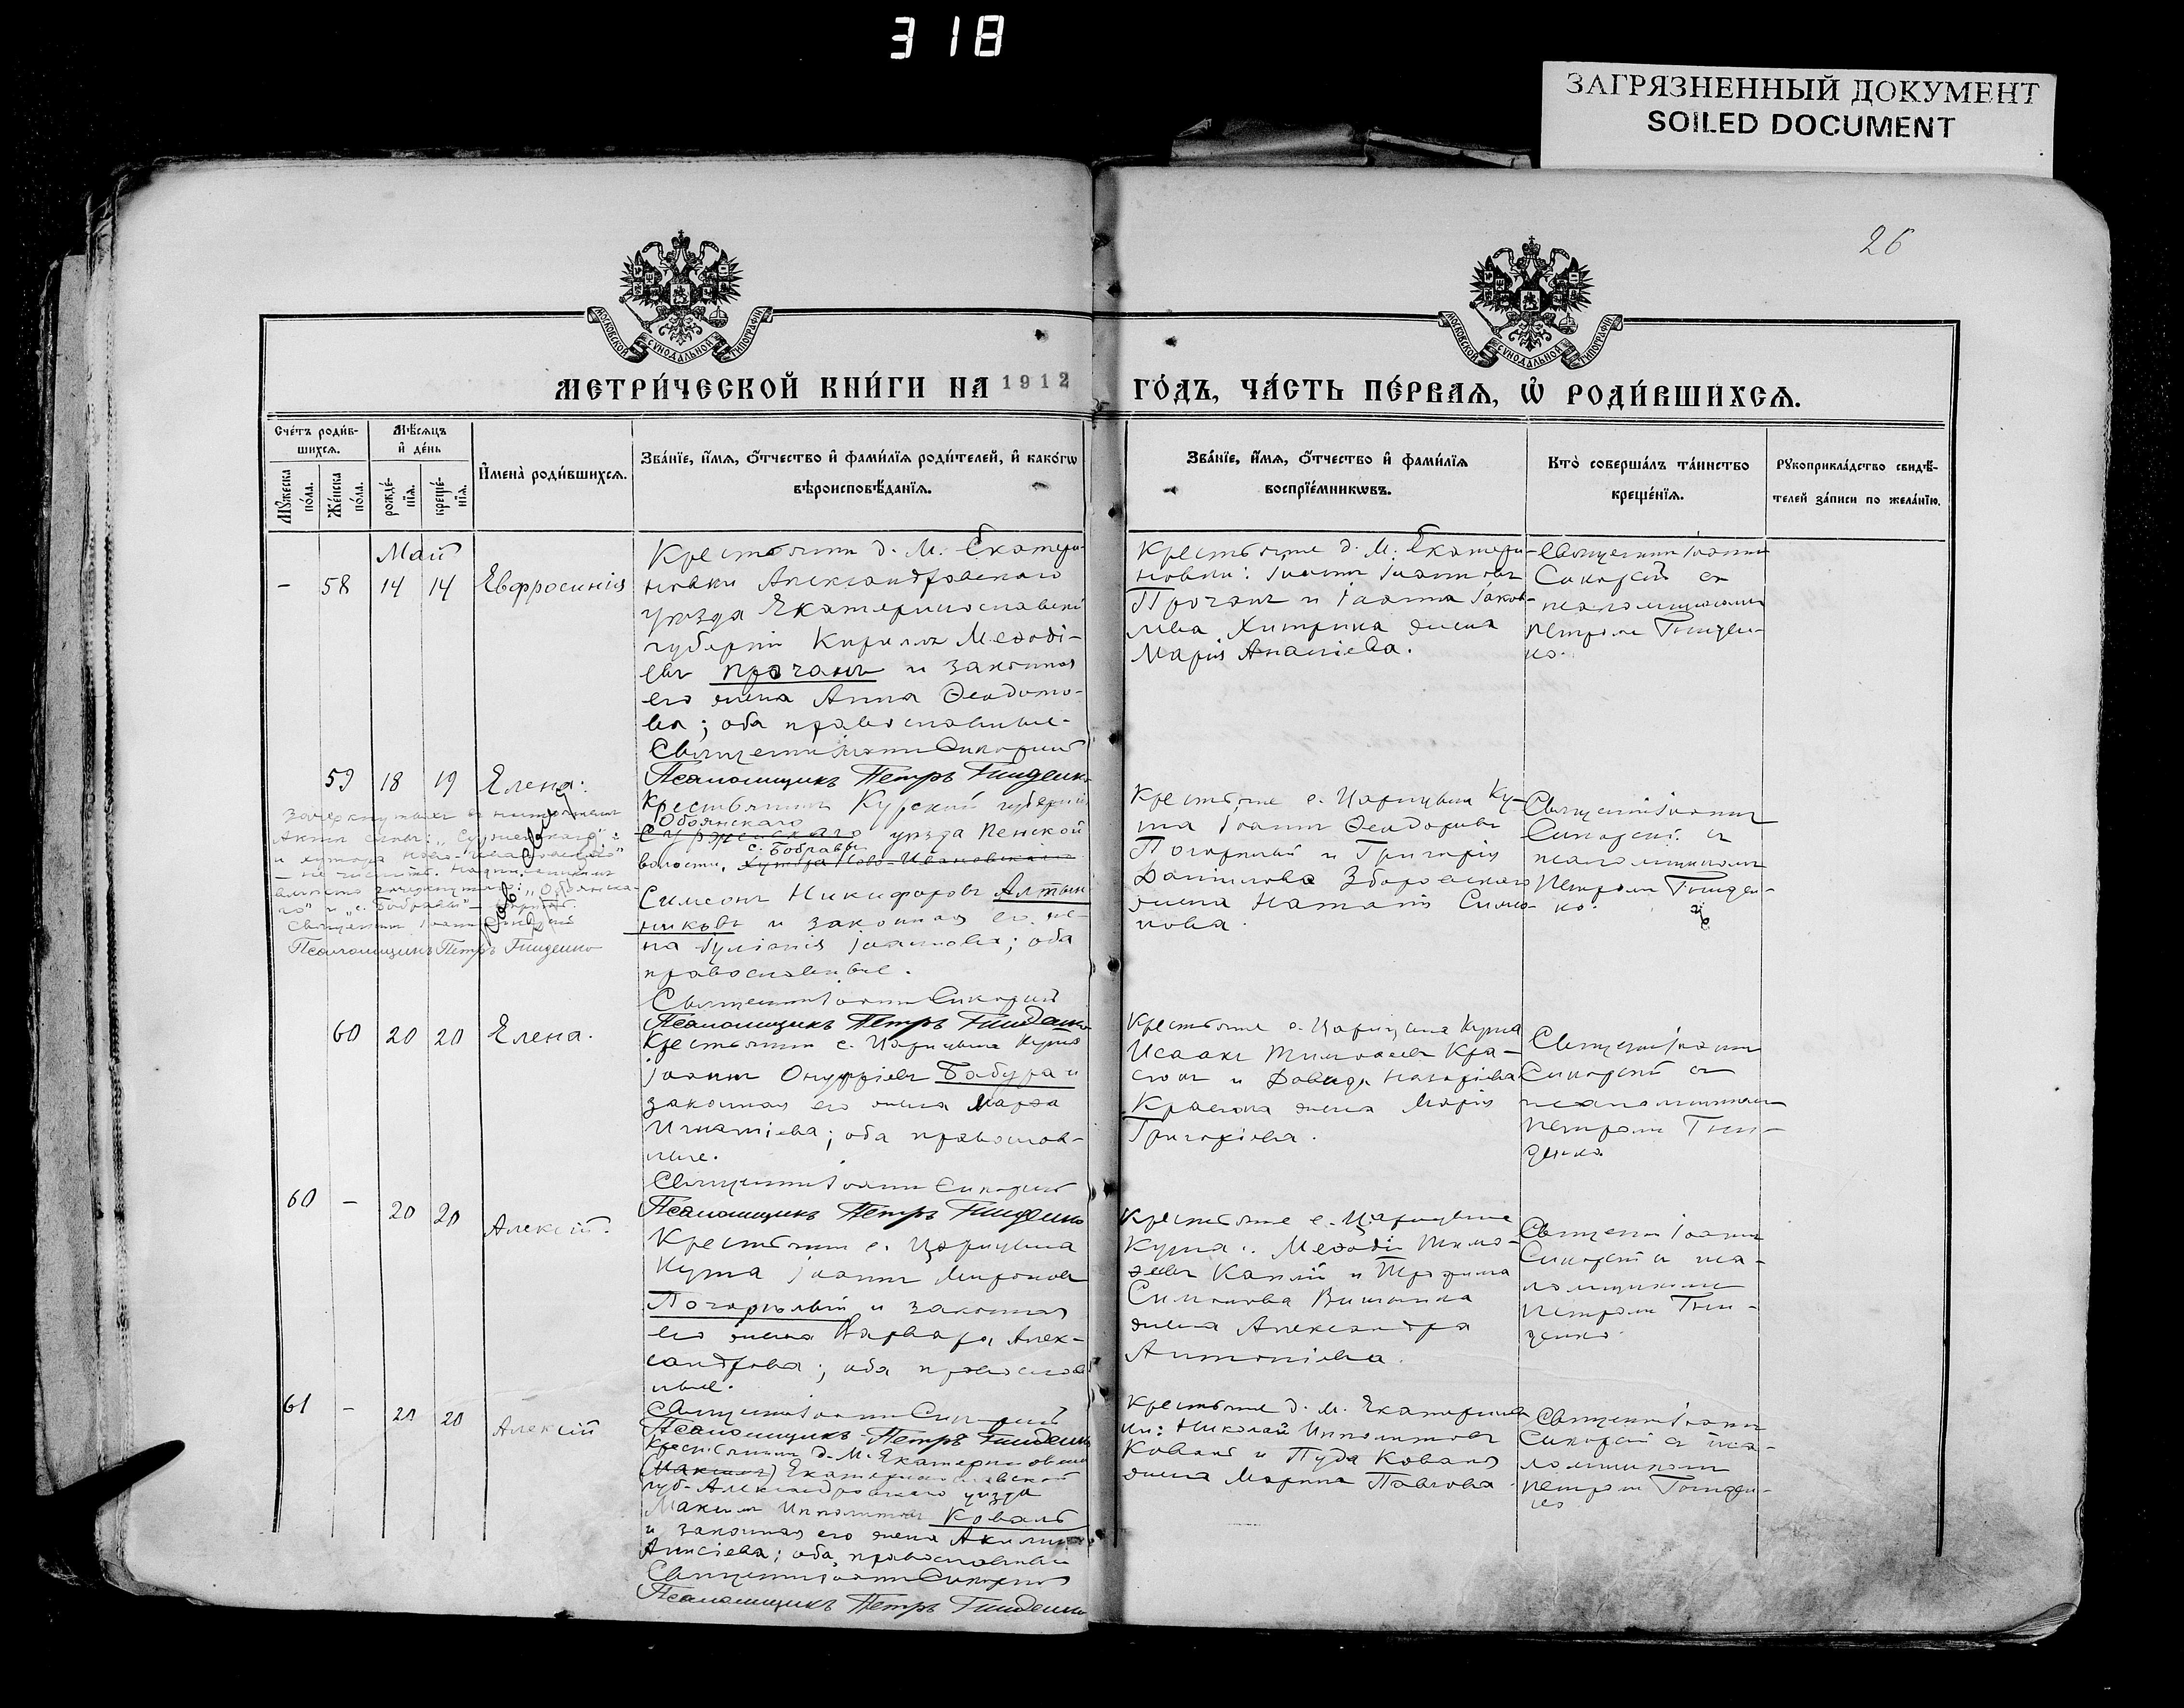 318
ЗАГРЯЗНЕННЫЙ ДОКУМЕНТ
SOILED DOCUMENT
26
МОСКОВСКОЙ СѴНОДАЛЬНОЙ ТИПОГРАФІИ
МОСКОВСКОЙ СѴНОДАЛЬНОЙ ТИПОГРАФІИ
МЕТРИ́ЧЕСКОЙ КНИ́ГИ НА 1912
ГО́ДЪ, ЧА́СТЬ ПЕ́РВАЯ, Ѡ҆ РОДИ́ВШИХСЯ.
Сче́тъ роди́в-
шихся.
Мꙋ́жеска по́ла.
Же́нска по́ла.
Мѣ́сяцъ
и҆ де́нь
рожде́-нїя.
креще́-нїя.
И҆мена̀ роди́вшихся.
Зва́нїе, и҆́мя, ѻ҆́тчество и҆ фами́лїя роди́телей, и҆ како́гѡ
вѣроисповѣ́данїя.
Зва́нїе, и҆́мя, ѻ҆́тчество и҆ фами́лїя
воспрїе́мникѡвъ.
Кто̀ соверша́лъ та́инство
креще́нїя.
Рꙋкоприкла́дство свидѣ́-
телей за́писи по жела́нїю.
Май
- 58 14 14 Евфросинія
Крестьянинъ д. М. Екатери-
новки Александровскаго
уѣзда Екатеринославской
губерніи Кириллъ Меѳоді-
евъ Прочанъ и законная
его жена Анна Ѳеодото-
ва; оба православные.
Священникъ Іоаннъ Сикорскій
Псаломщикъ Петръ Гниденко
Крестьяне д. М. Екатери-
новки: Іоаннъ Іоанновъ
Прочанъ и Іоанна Іаков-
лева Хитрика жена
Марія Ананіева.
Священникъ Іоаннъ
Сикорскій съ
псаломщикомъ
Петромъ Гниден-
ко.
59 18 19 Елена.
Зачеркнутыхъ въ настоящемъ
Псаломщикъ Петръ Гниденко
Крестьянинъ Курской губерніи
Обоянскаго
уѣзда Пенской
с. Бобравы
волости, хутора Ново-Ивановскаго
Симеонъ Никифоровъ Алтын-
никовъ и законная его же-
на Іуліанія Іоаннова; оба
православные.
Священникъ Іоаннъ Сикорскій
Псаломщикъ Петръ Гниденко
Крестьяне с. Царицына Ку-
та Іоаннъ Ѳеодоровъ
Погорѣлый и Григорія
Даніилова Зборовскаго
жена Наталія Симо-
нова.
Священникъ Іоаннъ
Сикорскій съ
псаломщикомъ
Петромъ Гниден-
ко.
60 20 20 Елена.
Крестьянинъ с. Царицына Кута
Іоаннъ Онуфріевъ Бабура и
законная его жена Марѳа
Игнатіева; оба православ-
ные.
Священникъ Іоаннъ Сикорскій
Псаломщикъ Петръ Гниденко
Крестьяне с. Царицына Кута
Исаакъ Тимоѳеевъ Кра-
сюкъ и Давида Назаріева
Красюка жена Марія
Григоріева.
Священникъ Іоаннъ
Сикорскій съ
псаломщикомъ
Петромъ Гни-
денко.
60 - 20 20 Алексій.
Крестьянинъ с. Царицына
Кута Іоаннъ Мироновъ
Погорѣлый и законная
его жена Варвара Алек-
сандрова; оба православ
ные.
Священникъ Іоаннъ Сикорскій
Псаломщикъ Петръ Гниденко
Крестьяне с. Царицына
Кута: Меѳодій Тимо-
ѳеевъ Каплій и Трофима
Симонова
жена Александра
Антоніева.
Священникъ Іоаннъ
Сикорскій съ пса-
ломщикомъ
Петромъ Гни-
денко.
61 - 20 20 Алексій
Крестьянинъ д. М. Екатериновки
(Максимъ) Екатеринославской
губ. Александровскаго уѣзда
Максимъ Ипполитовъ Коваль
и законная его жена Акилина
Анисіева; оба православные
Священникъ Іоаннъ Сикорскій
Псаломщикъ Петръ Гниденко
Крестьяне д. М. Екатеринов
ки: Николай Ипполитовъ
Коваль и Пуда Коваля
жена Марина Павлова.
Священникъ Іоаннъ
Сикорскій съ пса-
ломщикомъ
Петромъ Гниден-
ко